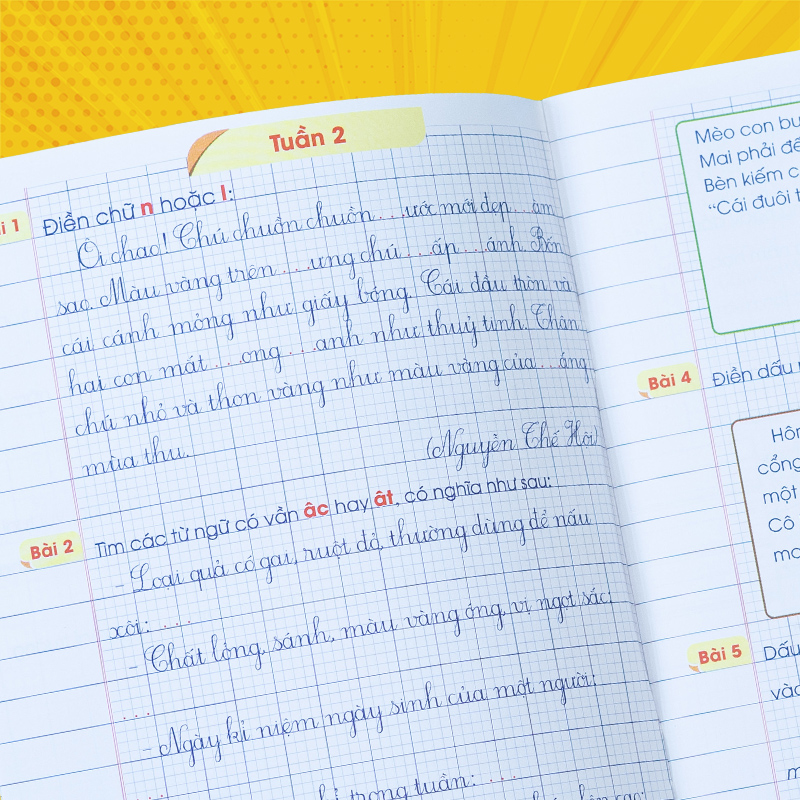 Tuần 2
i 1 Điền chữ n hoặc l:
Ôi chao! Chú chuồn chuồn ...ước mới đẹp ...àm
sao. Màu vàng trên ...ưng chú ...ấp ...ánh. Bốn
cái cánh mỏng như giấy bóng. Cái đầu tròn và
hai con mắt ...ong ...anh như thuỷ tinh. Thân
chú nhỏ và thon vàng như màu vàng của ...ắng
mùa thu.
(Nguyễn Thế Hội)
Bài 2 Tìm các từ ngữ có vần âc hay ât, có nghĩa như sau:
- Loại quả có gai, ruột đỏ, thường dùng để nấu
xôi: ...
- Chất lỏng, sánh, màu vàng óng, vị ngọt sắc:
...
- Ngày kỉ niệm ngày sinh của một người:
...
trong tuần: ...
Mèo con bu
Mai phải để
Bèn kiếm c
"Cái đuôi t
Bài 4 Điền dấu
Hôn
cổng
một
Cô
mo
Bài 5 Dấu
vào
m